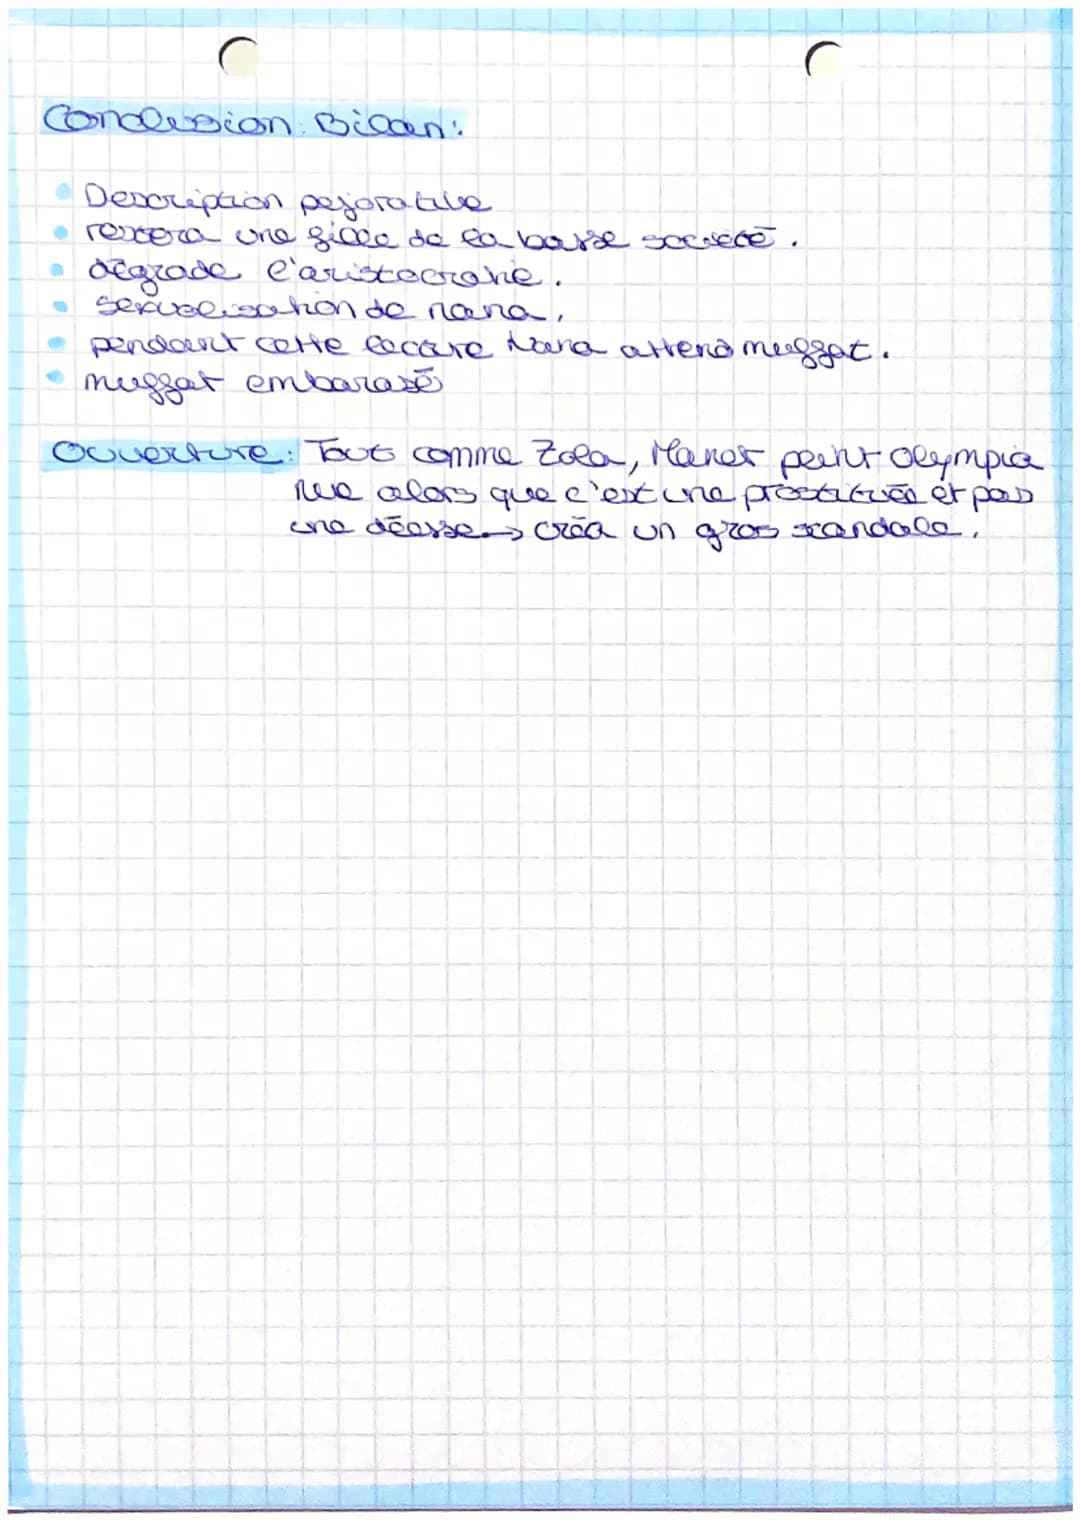 Conclusion: Bilan:
Description pejorative
restera une fille de la basse société.
dégrade l'aristocratie.
sexualisation de nana,
pendant cette lecture Nana attend muffat.
muffat embarasé
Ouverture: Tout comme Zola, Manet peint Olympia
nue alors que c'est une prostituée et pas
une déesse → créa un gros scandale,